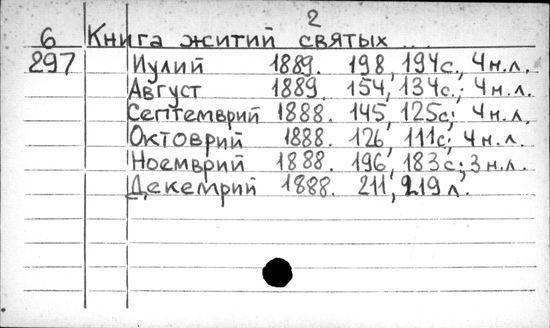 2
6 Книга житий святых ...
297 Иулий 1889. 198, 194с., 4 н.л.
Август 1889. 154, 134с.; 4 н.л.
Септемврий 1888. 145, 125с; 4 н.л.
Октоврий 1888. 126, 111с, 4 н.л.
Ноемврий 1888. 196, 183с; 3 н.л.
Декемрий 1888. 211, 219 л.